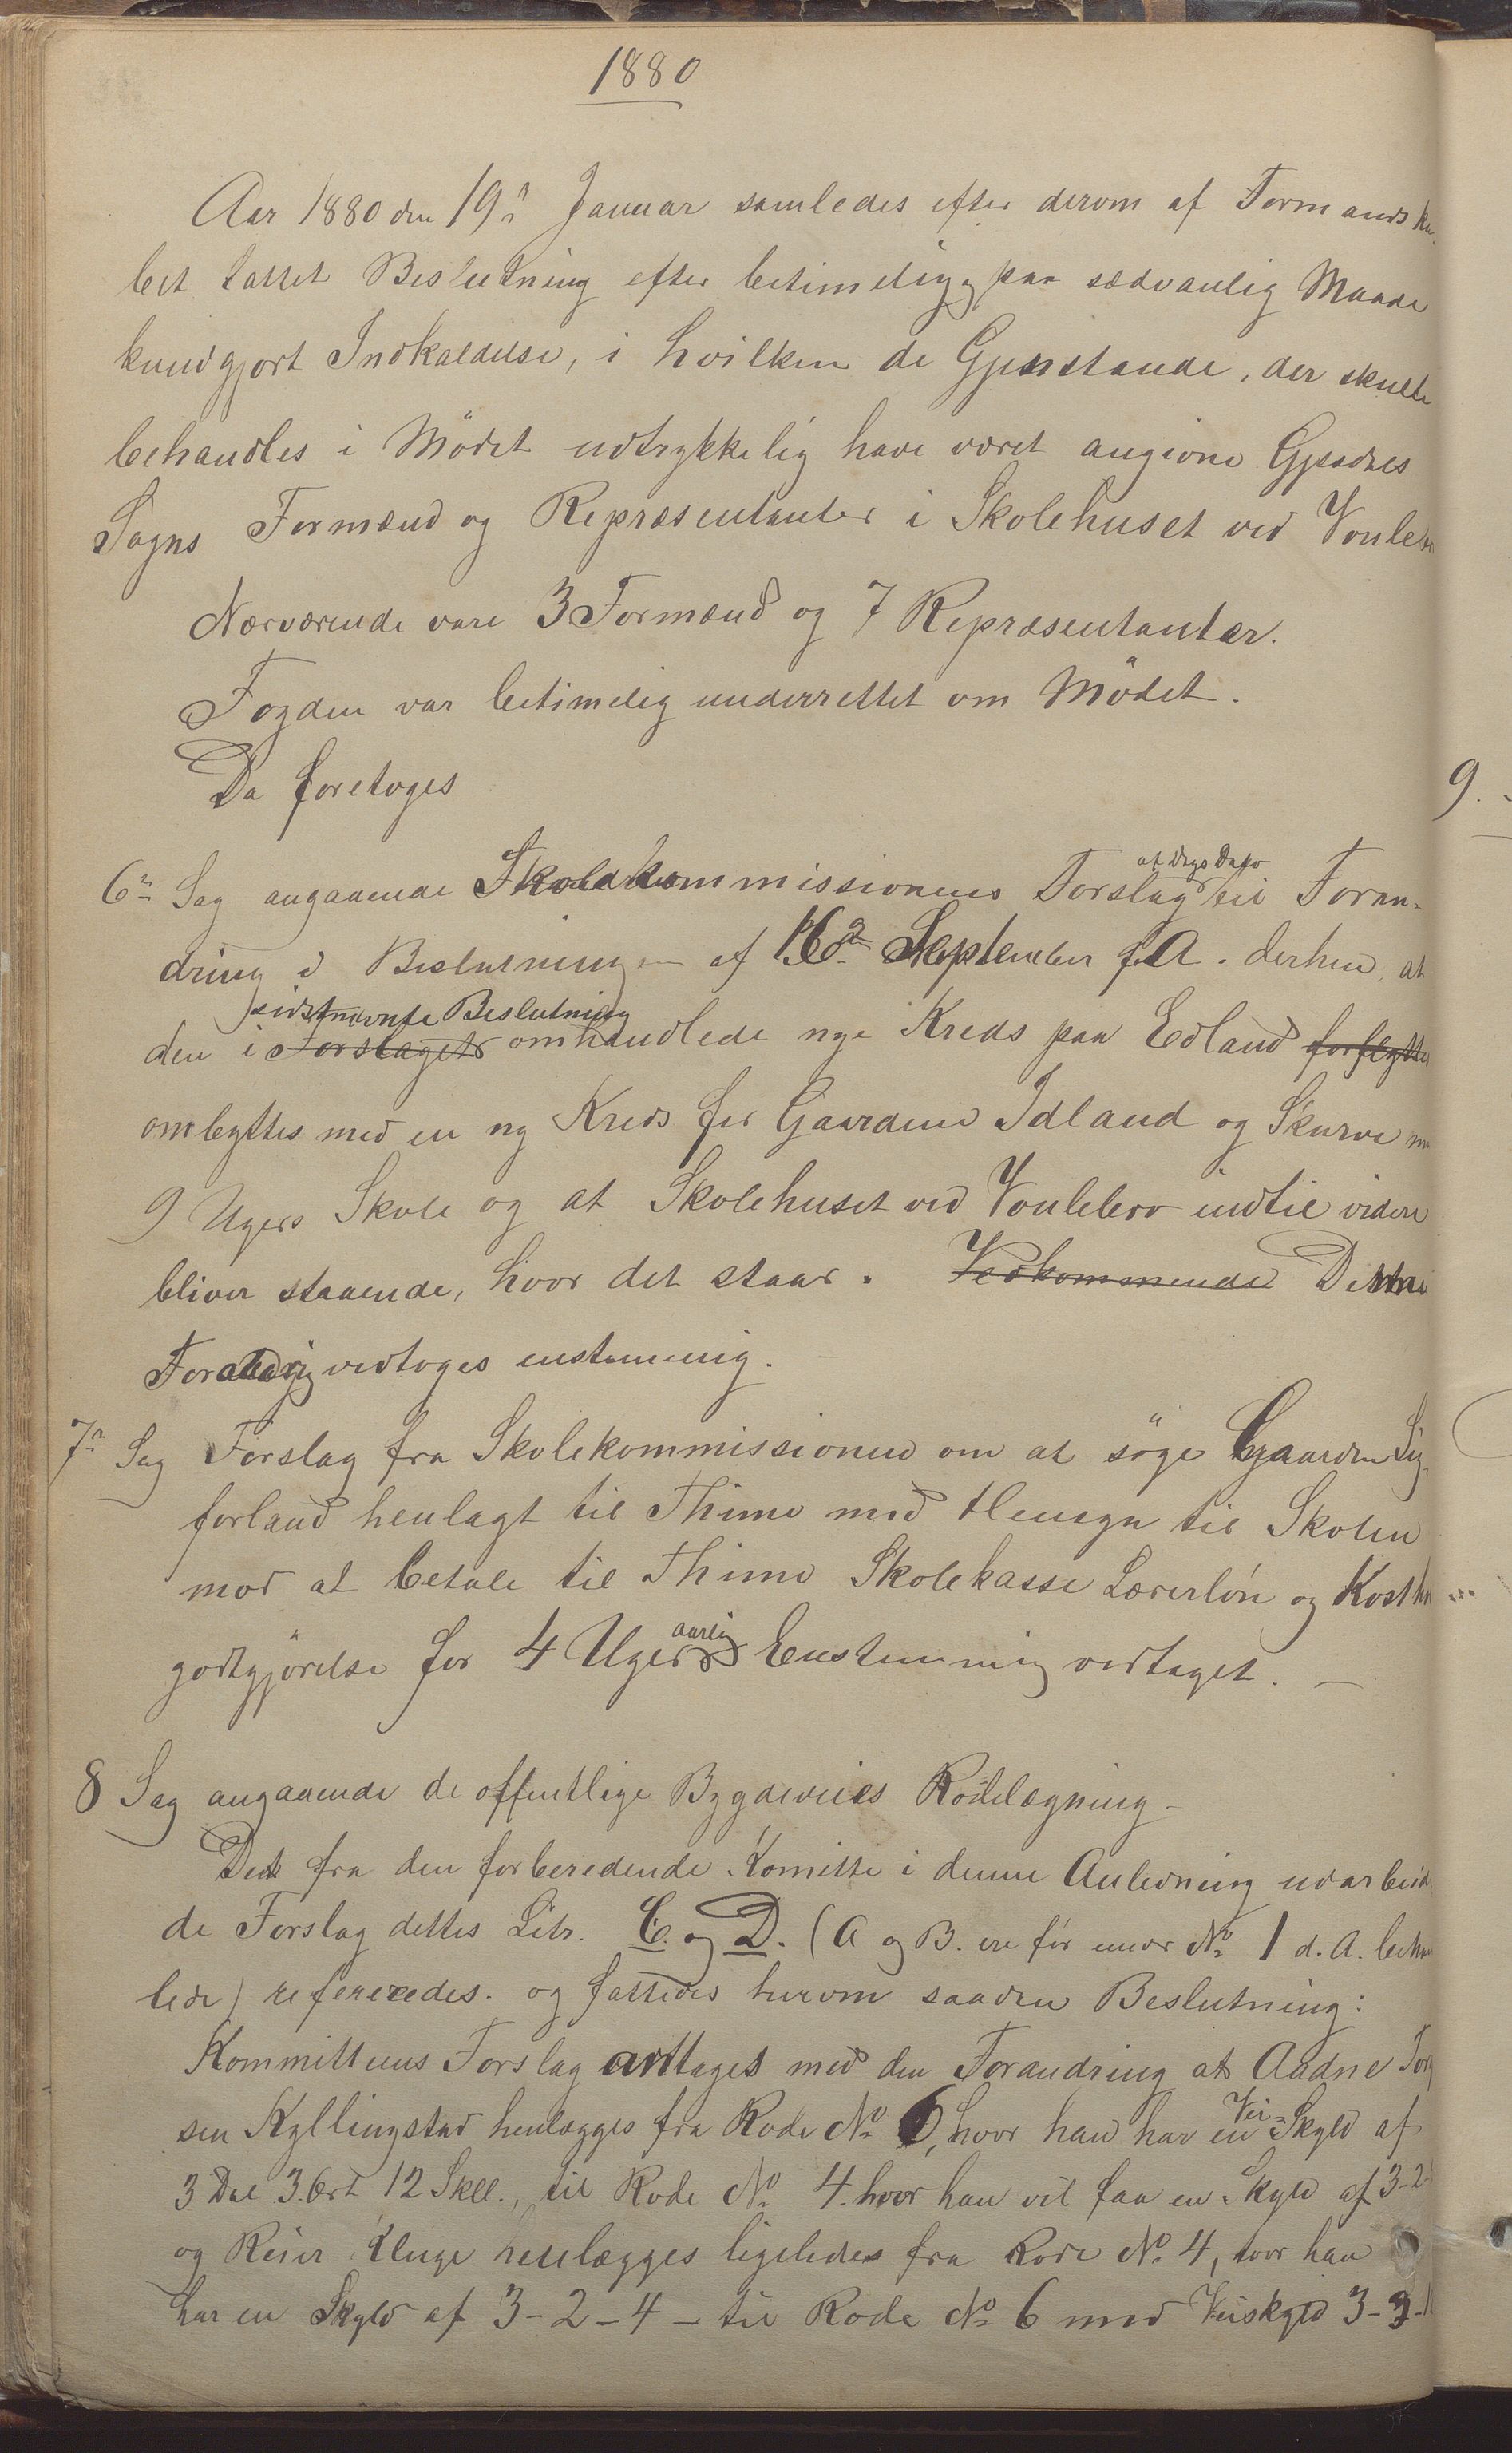 1880
Aar 1880 den 19n Januar samledes efter derom af Formandska-
bet fattet Beslutning efter betimelig og paa sædvanlig Maade
kundgjort Indkaldelse, i hvilken de Gjenstande, der skulde
behandles i Mödet udtrykkelig have været angivne Gjesdals
Sogns Formænd og Repræsentanter i Skolehuset ved
Nærværende vare 3 Formænd og 7 Repræsentanter.
Fogden var betimelig underrettet om Mödet.
Da foretoges
6n Sag angaaende Skolekommissionens Forslag af Dags Dato til Foran-
dring i Beslutningen af 16de September f. A. derhen, at
den i Forslaget sidstnævnte Beslutning omhandlede nye Kreds paa Edland forflyttes
ombyttes med en ny Kreds for Gaardene Idland og Skurve
9 Ugers Skole og at Skolehuset ved indtil videre
bliver staaende, hvor det staar. Vedkommende Denne
Forandring vedtoges enstemmig.
7n Sag Forslag fra Skolekommissionen om at söge Gaarden Sig-
forland henlagt til Thime med Hensyn til Skolen
mod at betale til Thime Skolekasse Lærerlön og Kost
godtgjörelse for 4 Uger aarlig Enstemmig vedtaget. —
8 Sag angaaende de offentlige Bygdeveies Rodelægning —
Det fra den forberedende Komitte i denne Anledning udarbeide-
de Forslag dettes Litr. C. og D. (A og B. ere för under No 1 d. A. behand-
lede) refereredes. og fattedes herom saadan Beslutning:
Kommitteens Forslag antages med den Forandring at Aadne
sen Kyllingstad henlægges fra Rode No 6, hvor han har en Vei-Skyld af
3 Dal 3. Ort 12 Skll., til Rode No 4. hvor han vil faa en Skyld af 3-2-
og Reier Kluge henlægges ligeledes fra Rode No 4, hvor han
har en Skyld af 3-2-4 — til Rode No 6 med Veiskyld 3-3-
9.